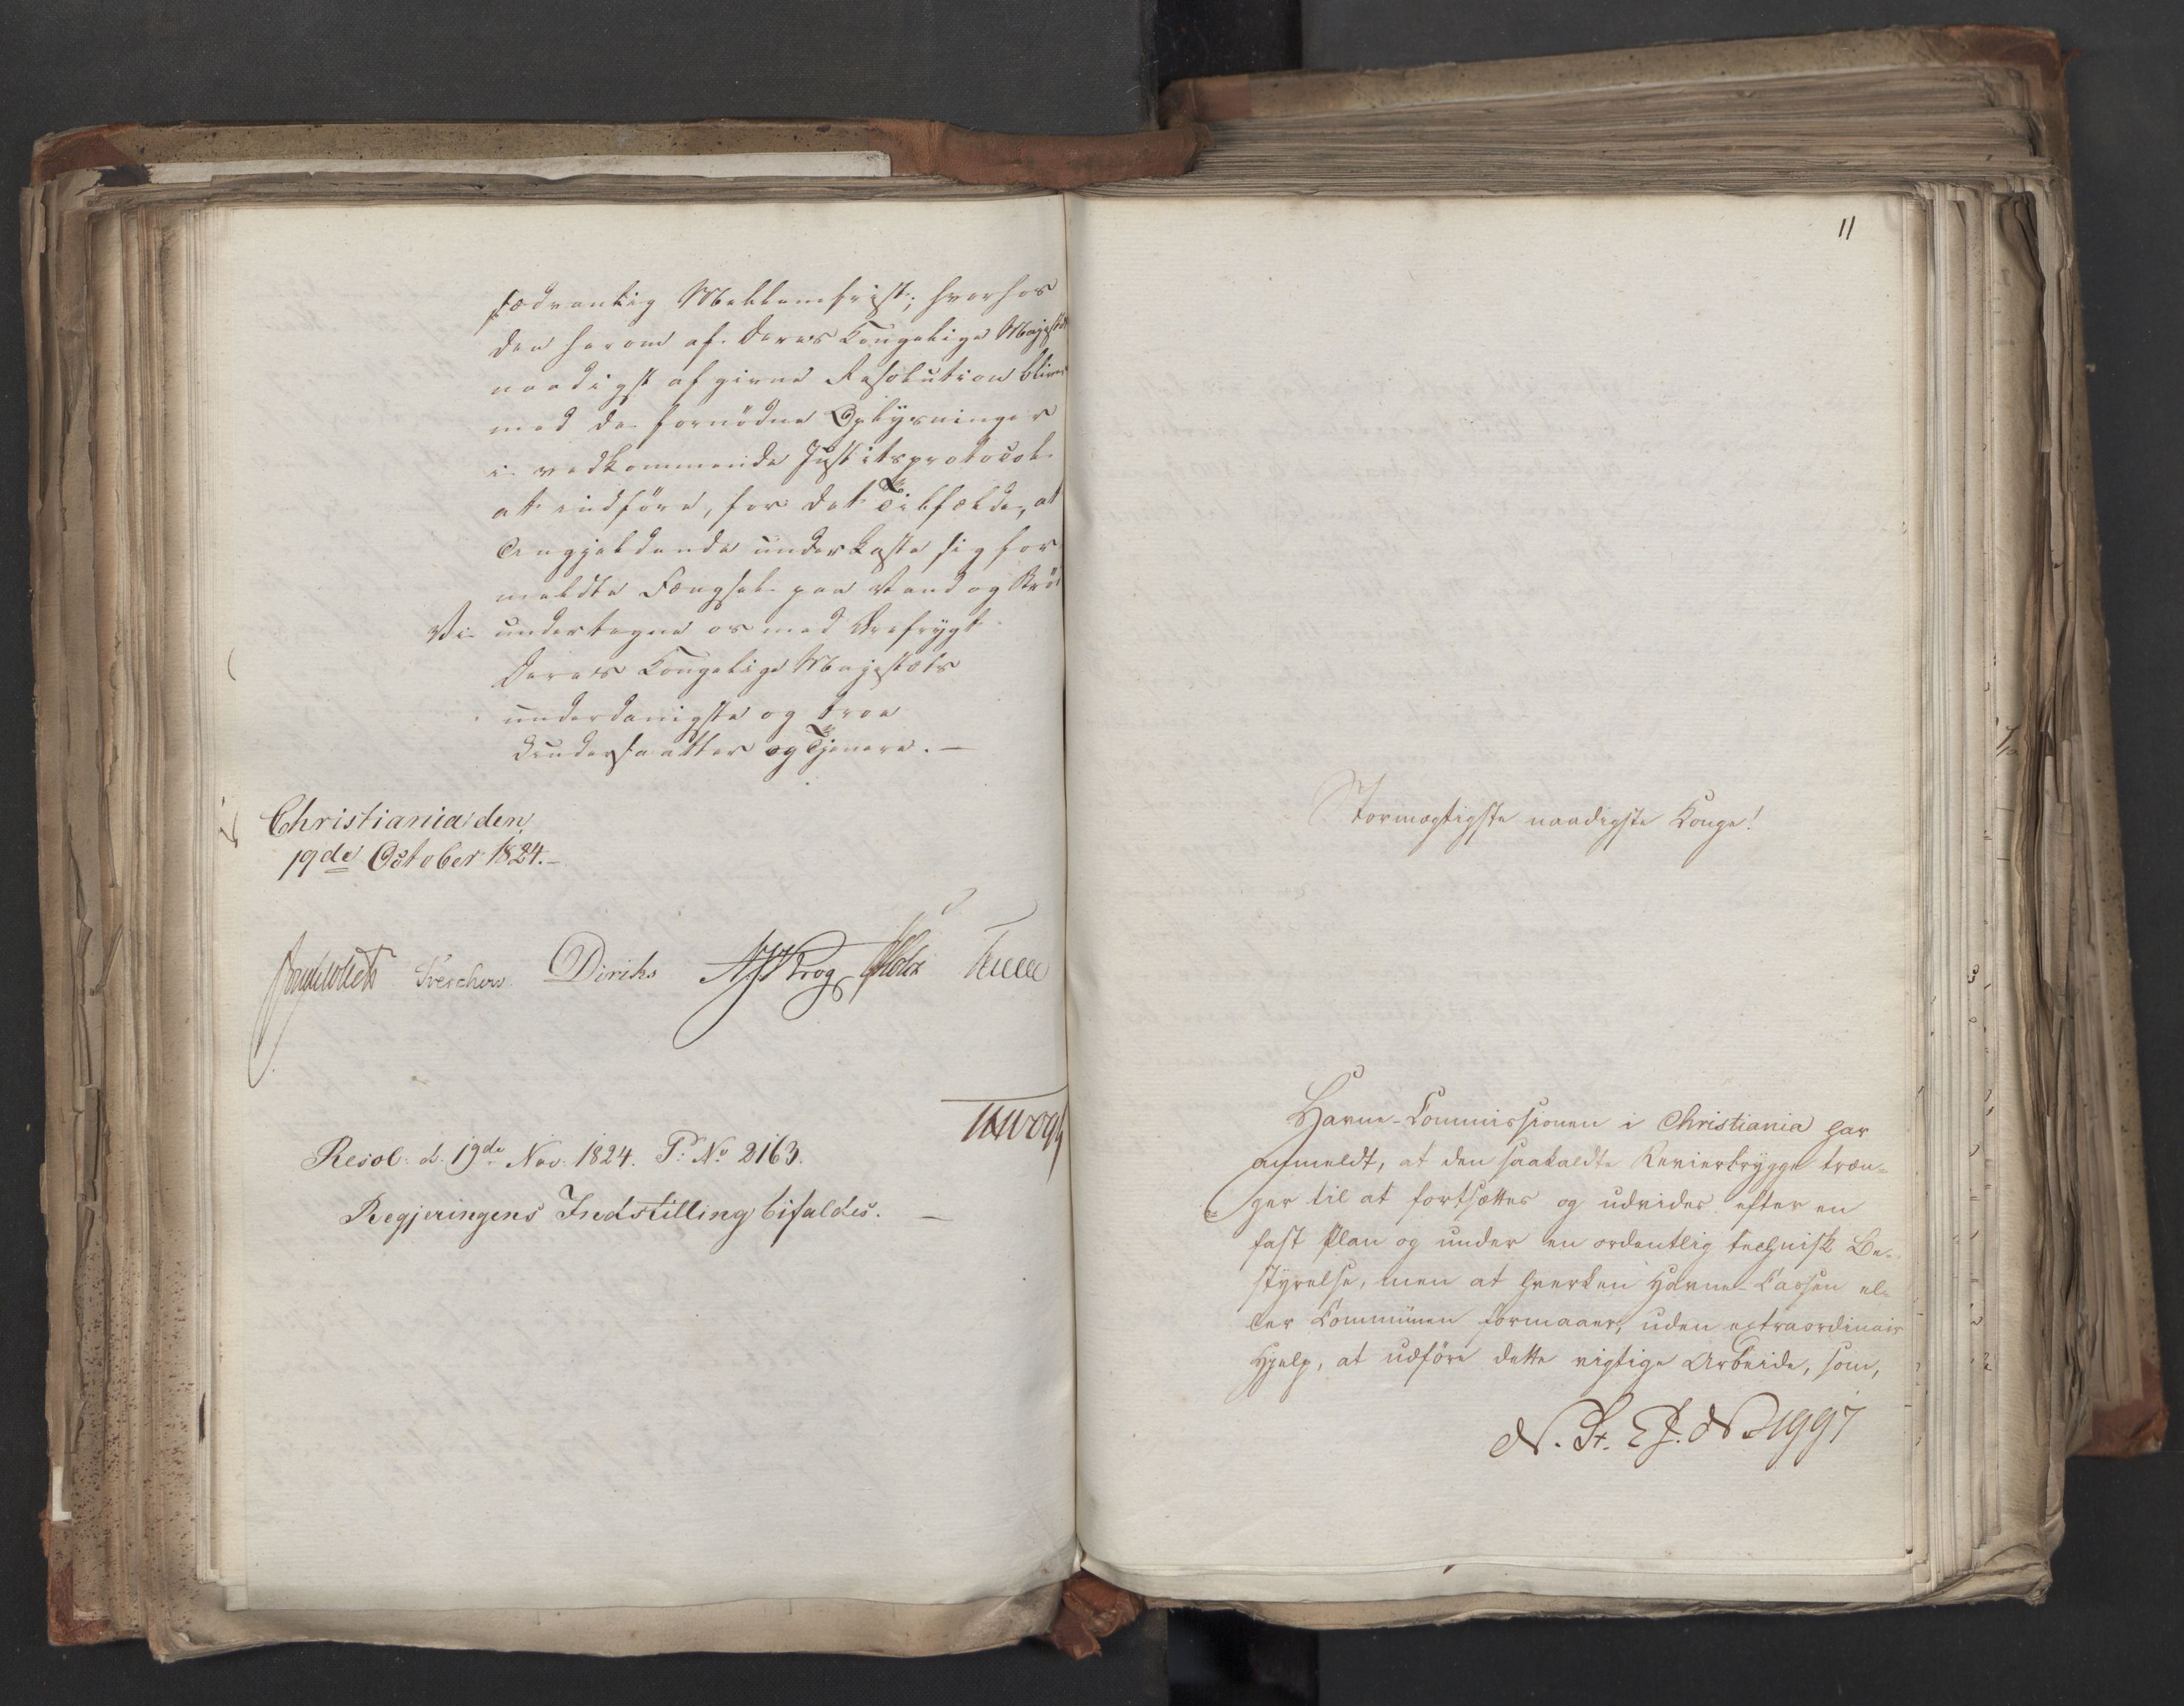 sædvanlig Mellemfrist; hvorhos
den herom af Deres Kongelige Majestæt
naadigst afgivne Resolution bliver
med de fornödne Oplysninger
i vedkommende Justitsprotocol
at indföre, for det Tilfælde, at
Vengjeldende underkaste sig for
meldte Fængsel paa Vand og Bröd
Vi undertegne os med Ærefrygt
Deres Kongelige Majestæts
underdanigste og troe
Undersaatter og Tjenere. —
Christiania den
19de October 1824.—
Diriks Krog Holst
Resol: d. 19de Nov. 1824. P: No 2163.
Regjeringens Indstilling bifaldes. —
11
Stormægtigste naadigste Konge!
Havne-Commissionen i Christiania har
anmeldt, at den saakaldte Revierbrygge træn-
ger til at fortsættes og udvides efter en
fast Plan og under en ordentlig technisk Be-
styrelse, men at hverken Havne-Cassen el-
ler Communen formaaer, uden extraordinair
Hjelp, at udföre dette vigtige Arbeide, som,
N. St. E. J. No 1997